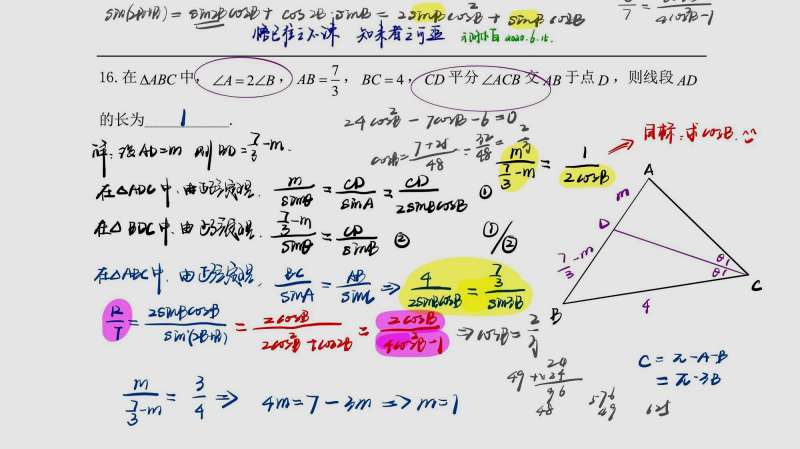 sin(2B+B) = sin2BcosB + cos2B·sinB = 2sinBcos²B + sinBcos2B
7 = 4cos²B-1
悟已往之不谏 知来者之可追
2020.6.15.
16. 在 △ABC 中, ∠A=2∠B, AB=7/3, BC=4, CD 平分 ∠ACB 交 AB 于点 D, 则线段 AD
的长为 1 .
24cos²B-7cosB-6=0
cosB = (7+25)/48 = 32/48 = 2/3
目标:求cosB.
解:设AD=m 则BD=7/3-m.
m/(7/3-m) = 1/(2cosB)
在△ADC中,由正弦定理, m/sinθ = CD/sinA = CD/(2sinBcosB) ①
在△BDC中,由正弦定理, (7/3-m)/sinθ = CD/sinB ② ①/②
在△ABC中,由正弦定理, BC/sinA = AB/sinC ⇒ 4/(2sinBcosB) = (7/3)/sin3B
12/7 = 2sinBcosB/sin(2B+B) = 2cosB/(2cos²B+cos2B) = 2cosB/(4cos²B-1) ⇒ cosB=2/3
m/(7/3-m) = 3/4 ⇒ 4m=7-3m ⇒ m=1
A
m
D
7/3-m
θ
θ
B
4
C
C=π-A-B
=π-3B
24
×24
96
48
576
49
625